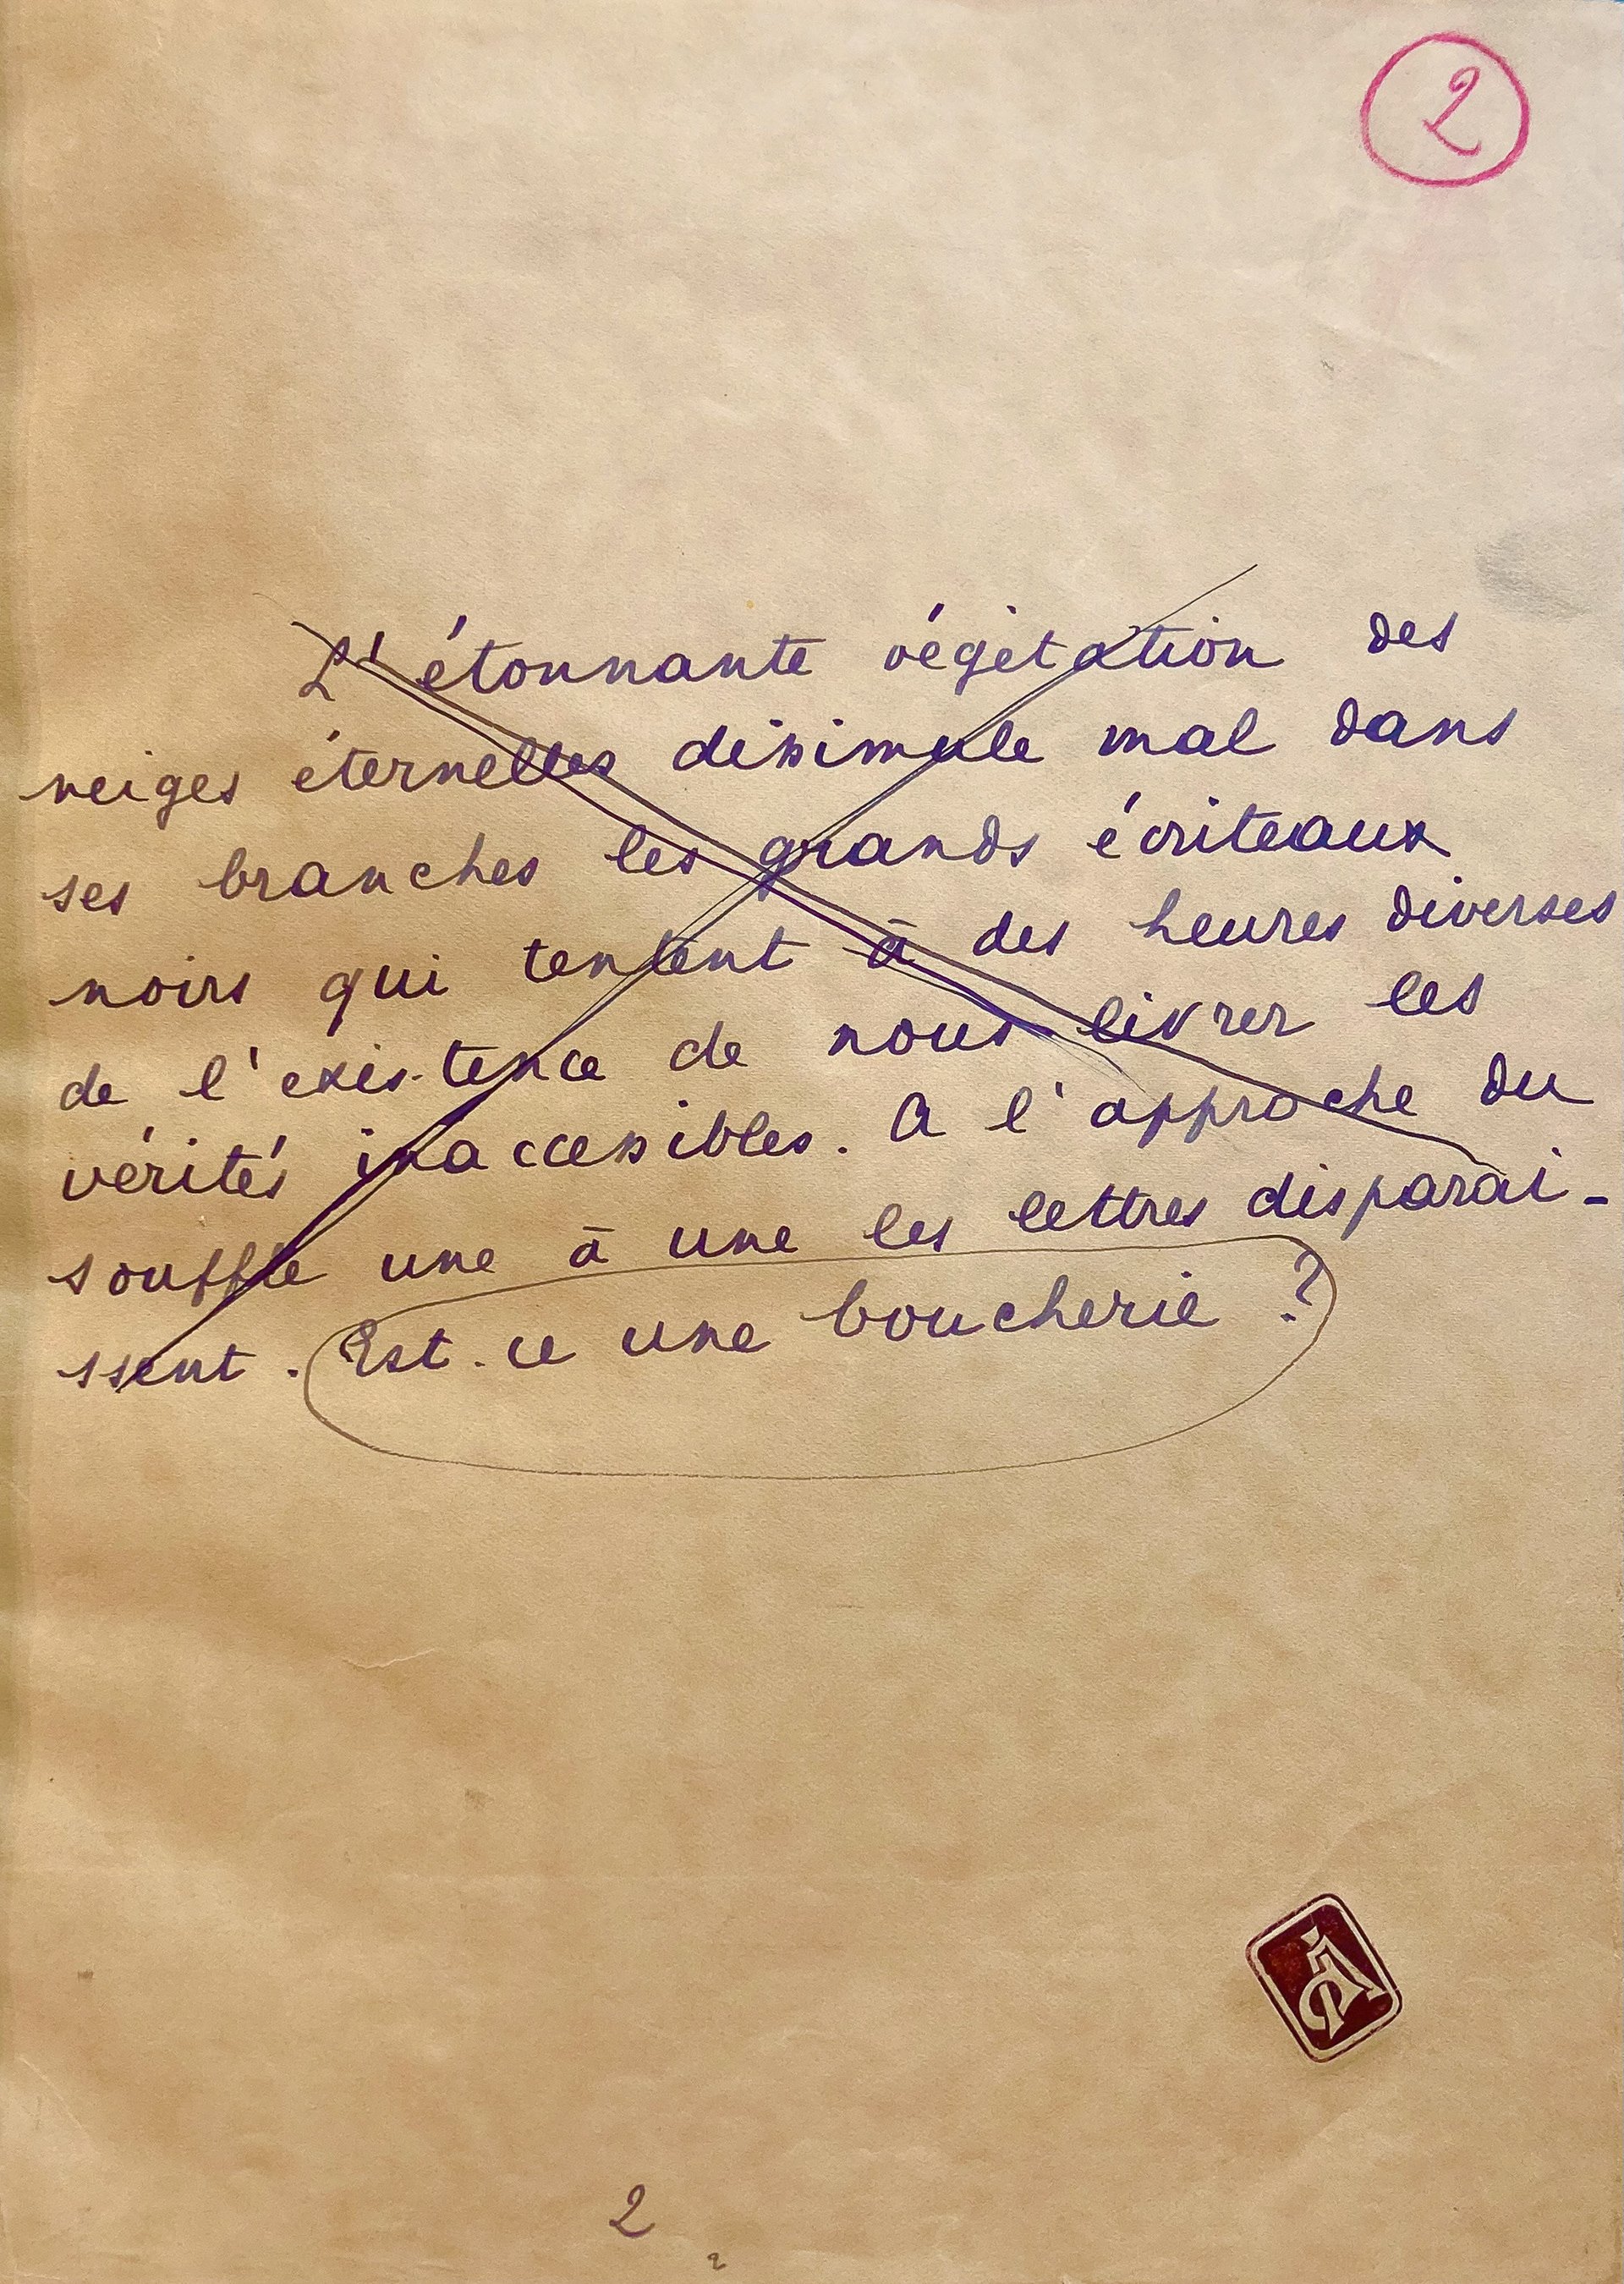 2
L'étonnante végétation des
neiges éternelles dissimule mal dans
ses branches les grands écriteaux
noirs qui tentent à des heures diverses
de l'existence de nous livrer les
vérités inaccessibles. A l'approche du
souffle une à une les lettres disparai-
ssent. Est-ce une boucherie ?
2
2